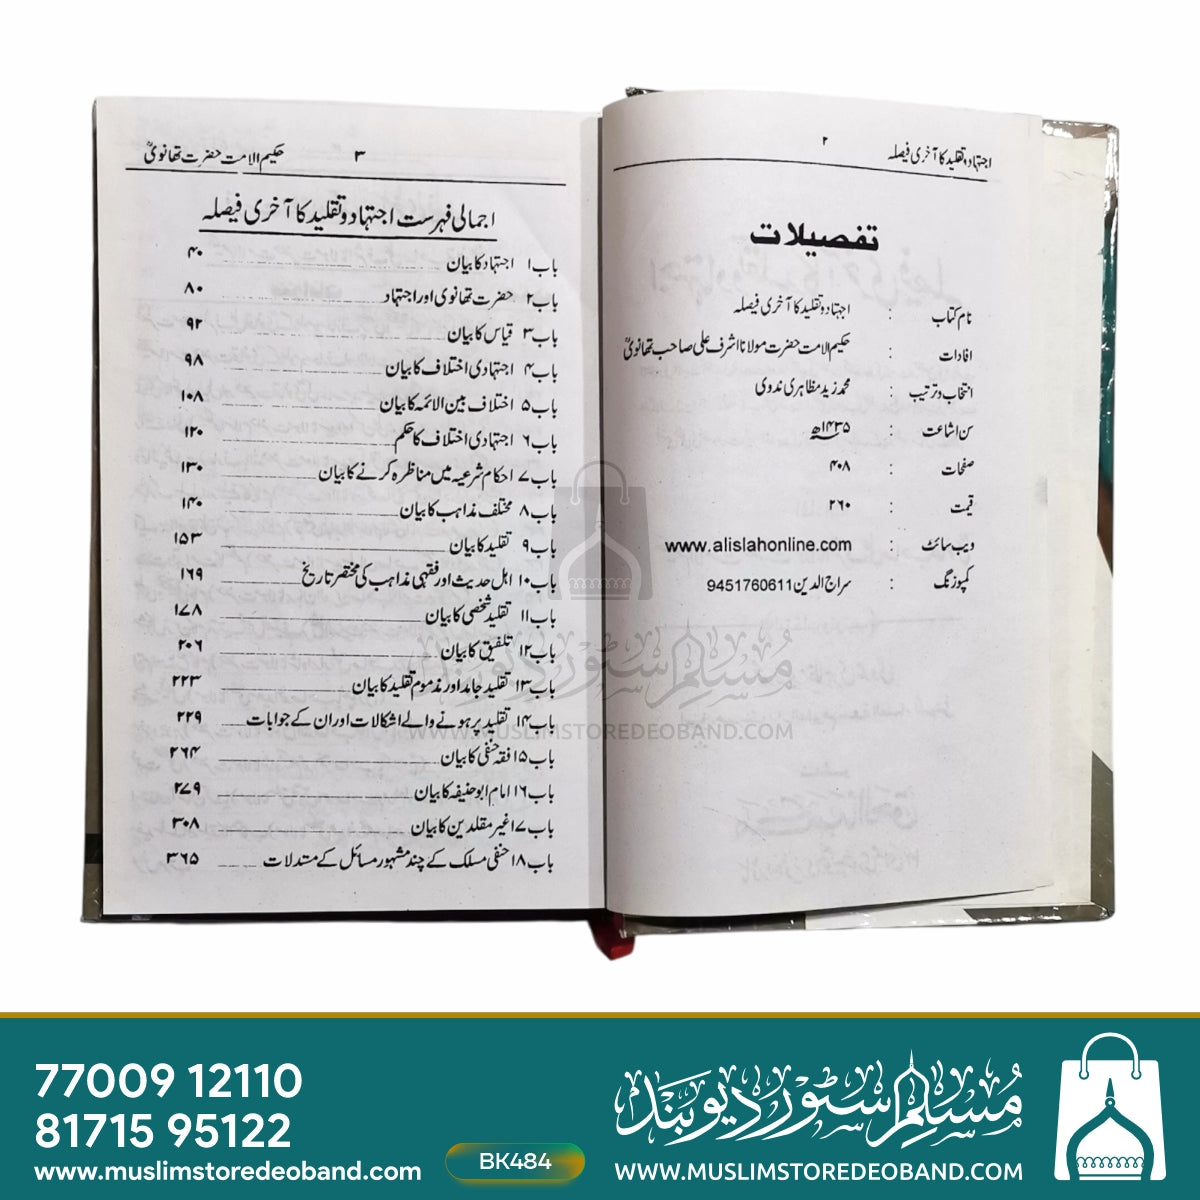 اجتہاد وتقلید کا آخری فیصلہ
۲
تفصیلات
نام کتاب : اجتہاد وتقلید کا آخری فیصلہ
افادات : حکیم الامت حضرت مولانا اشرف علی صاحب تھانویؒ
انتخاب وترتیب : محمد زید مظاہری ندوی
سن اشاعت : ۱۴۳۵ھ
صفحات : ۴۰۸
قیمت : ۲۶۰
ویب سائٹ : www.alislahonline.com
کمپوزنگ : سراج الدین 9451760611
۳
حکیم الامت حضرت تھانویؒ
اجمالی فہرست اجتہاد وتقلید کا آخری فیصلہ
باب ۱ اجتہاد کا بیان ۴۰
باب ۲ حضرت تھانوی اور اجتہاد ۸۰
باب ۳ قیاس کا بیان ۹۲
باب ۴ اجتہادی اختلاف کا بیان ۹۸
باب ۵ اختلاف بین الائمہ کا بیان ۱۰۸
باب ۶ اجتہادی اختلاف کا حکم ۱۲۰
باب ۷ احکام شرعیہ میں مناظرہ کرنے کا بیان ۱۳۰
باب ۸ مختلف مذاہب کا بیان ۱۴۰
باب ۹ تقلید کا بیان ۱۵۳
باب ۱۰ اہل حدیث اور فقہی مذاہب کی مختصر تاریخ ۱۶۹
باب ۱۱ تقلید شخصی کا بیان ۱۷۸
باب ۱۲ تلفیق کا بیان ۲۰۶
باب ۱۳ تقلید جامد اور مذموم تقلید کا بیان ۲۲۳
باب ۱۴ تقلید پر ہونے والے اشکالات اور ان کے جوابات ۲۲۹
باب ۱۵ فقہ حنفی کا بیان ۲۶۴
باب ۱۶ امام ابو حنیفہ کا بیان ۲۷۹
باب ۱۷ غیر مقلدین کا بیان ۳۰۸
باب ۱۸ حنفی مسلک کے چند مشہور مسائل کے مستدلات ۳۶۵
مسلم سٹور دیوبند
WWW.MUSLIMSTOREDEOBAND.COM
77009 12110
81715 95122
www.muslimstoredeoband.com
BK484
مسلم سٹور دیوبند
WWW.MUSLIMSTOREDEOBAND.COM